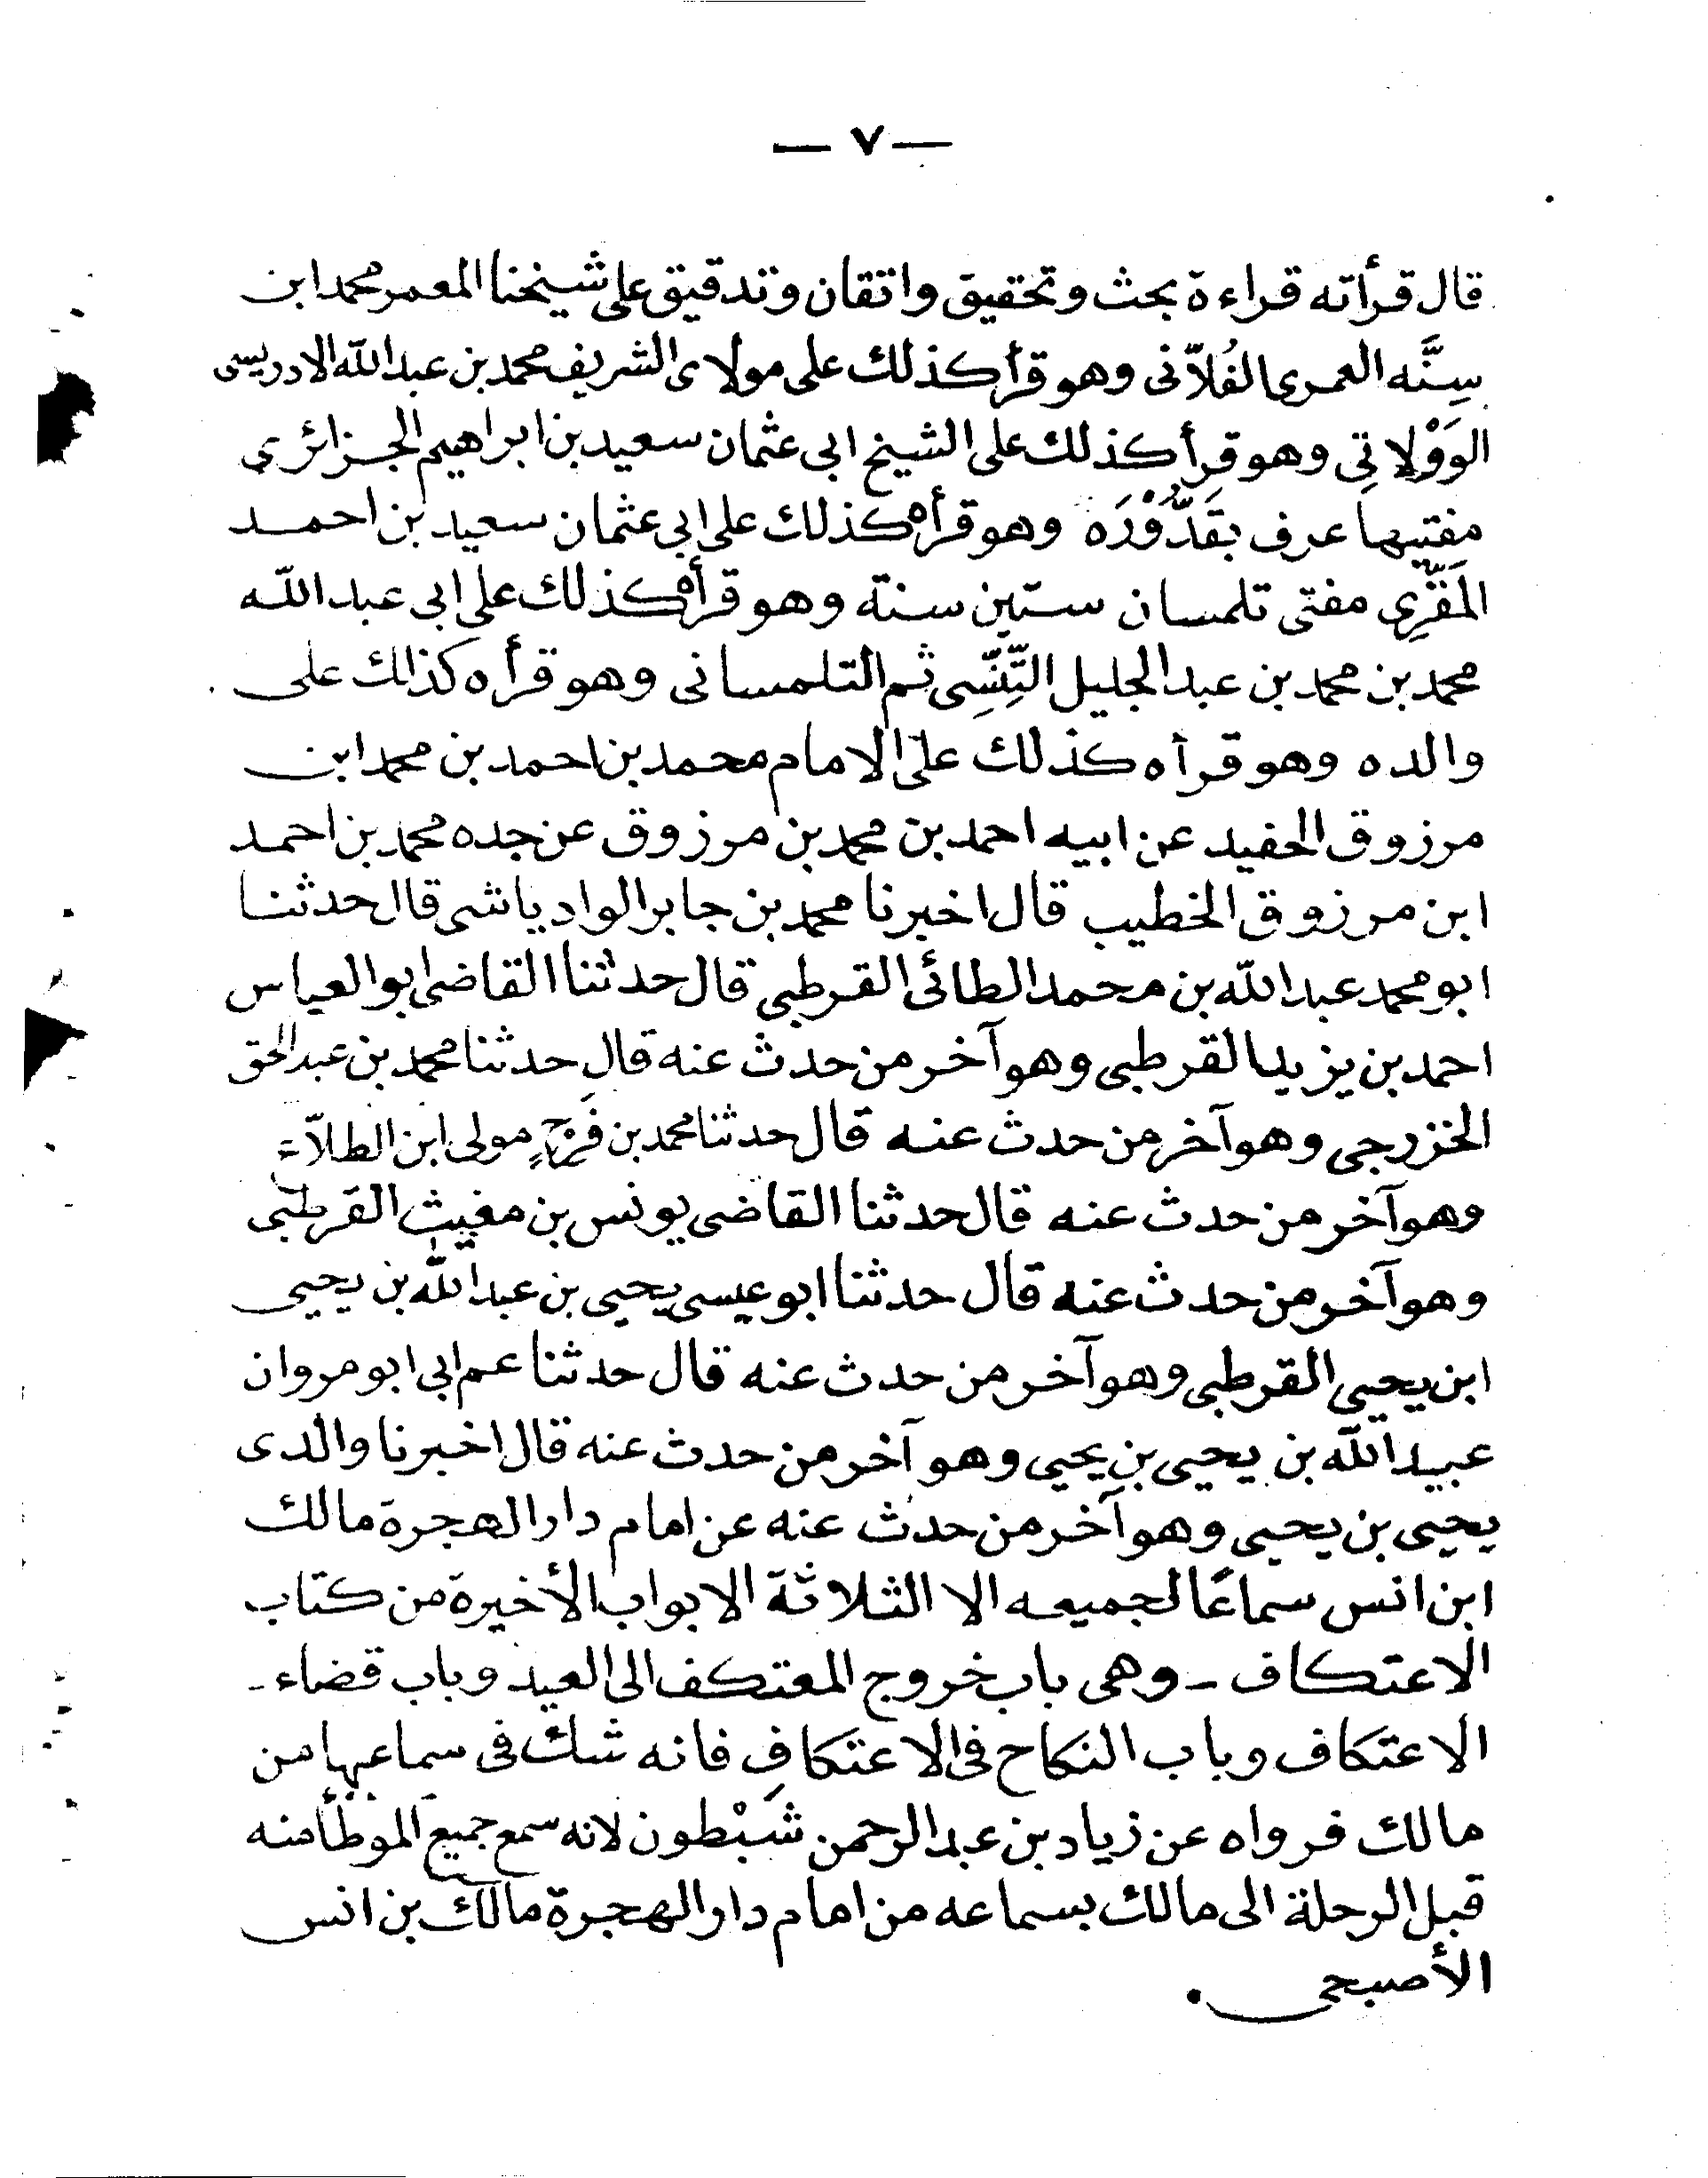 — ٧ —
قال قرأته قراءة بحث وتحقيق واتقان وتدقيق على شيخنا المعمر محمد ابن
سِنَّه العمرى الفُلاّنى وهو قرأ كذلك على مولاى الشريف محمد بن عبد الله الادريسى
الوَوْلاتِى وهو قرأ كذلك على الشيخ ابى عثمان سعيد بن ابراهيم الجزائرى
مفتيها عرف بقَدُّوْرَه وهو قرأه كذلك على ابى عثمان سعيد بن احمد
المَقَّرِى مفتى تلمسان ستين سنة وهو قرأه كذلك على ابى عبد الله
محمد بن محمد بن عبد الجليل التَّنَسِى ثم التلمسانى وهو قرأه كذلك على
والده وهو قرأه كذلك على الامام محمد بن احمد بن محمد ابن
مرزوق الحفيد عن ابيه احمد بن محمد بن مرزوق عن جده محمد بن احمد
ابن مرزوق الخطيب قال اخبرنا محمد بن جابر الوادياشى قال حدثنا
ابو محمد عبد الله بن محمد الطائى القرطبى قال حدثنا القاضى ابو العباس
احمد بن يزيد القرطبى وهو آخر من حدث عنه قال حدثنا محمد بن عبد الحق
الخزرجى وهو آخر من حدث عنه قال حدثنا محمد بن فَرَجٍ مولى ابن الطلاّء
وهو آخر من حدث عنه قال حدثنا القاضى يونس بن مغيث القرطبى
وهو آخر من حدث عنه قال حدثنا ابو عيسى يحيى بن عبد الله بن يحيى
ابن يحيى القرطبى وهو آخر من حدث عنه قال حدثنا عم ابى ابو مروان
عبيد الله بن يحيى بن يحيى وهو آخر من حدث عنه قال اخبرنا والدى
يحيى بن يحيى وهو آخر من حدث عنه عن امام دار الهجرة مالك
ابن انس سماعًا لجميعه الا الثلاثة الابواب الأخيرة من كتاب
الاعتكاف - وهى باب خروج المعتكف الى العيد وباب قضاء -
الاعتكاف وباب النكاح فى الاعتكاف فانه شك فى سماعها من
مالك فرواه عن زياد بن عبد الرحمن شَبْطون لانه سمع جميع الموطأ منه
قبل الرحلة الى مالك بسماعه من امام دار الهجرة مالك بن انس
الأصبحى .